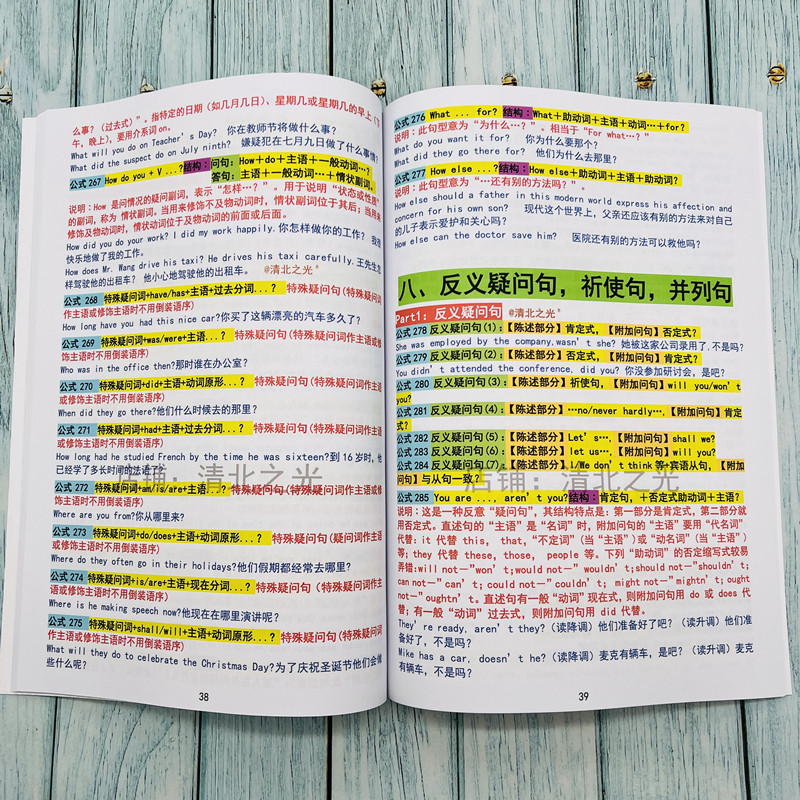 么事?（过去式）”。指特定的日期（如几月几日）、星期几或星期几的早上（下
午，晚上），要用介系词 on。
What will you do on Teacher’s Day? 你在教师节将做什么事?
What did the suspect do on July ninth? 嫌疑犯在七月九日做了什么事情?
公式 267 How do you + V ...?结构：问句：How＋do＋主语＋一般动词…?
答句：主语＋一般动词…＋情状副词。
说明：How 是问情况的疑问副词，表示“怎样…？”。用于说明“状态或性质”
的副词，称为 情状副词。当用来修饰不及物动词时，情状副词位于其后；当用来
修饰及物动词时，情状动词位于及物动词的前面或后面。
How did you do your work? I did my work happily.你怎样做你的工作? 我很
快乐地做了我的工作。
How does Mr. Wang drive his taxi? He drives his taxi carefully.王先生怎
样驾驶他的出租车? 他小心地驾驶他的出租车。 @清北之光
公式 268 特殊疑问词+have/has+主语+过去分词...? 特殊疑问句(特殊疑问词作
主语或修饰主语时不用倒装语序)
How long have you had this nice car?你买了这辆漂亮的汽车多久了?
公式 269 特殊疑问词+was/were+主语...? 特殊疑问句(特殊疑问词作主语或修
饰主语时不用倒装语序)
Who was in the office then?那时谁在办公室?
公式 270 特殊疑问词+did+主语+动词原形...? 特殊疑问句(特殊疑问词作主语
或修饰主语时不用倒装语序)
When did they go there?他们什么时候去的那里?
公式 271 特殊疑问词+had+主语+过去分词...? 特殊疑问句(特殊疑问词作主语
或修饰主语时不用倒装语序)
How long had he studied French by the time he was sixteen?到 16岁时，他
已经学了多长时间的法语了?
公式 272 特殊疑问词+am/is/are+主语...? 特殊疑问句(特殊疑问词作主语或修
饰主语时不用倒装语序)
Where are you from?你从哪里来?
公式 273 特殊疑问词+do/does+主语+动词原形...? 特殊疑问句(特殊疑问词作主语
或修饰主语时不用倒装语序)
Where do they often go in their holidays?他们假期都经常去哪里?
公式 274 特殊疑问词+is/are+主语+现在分词...? 特殊疑问句(特殊疑问词作主
语或修饰主语时不用倒装语序)
Where is he making speech now?他现在在哪里演讲呢?
公式 275 特殊疑问词+shall/will+主语+动词原形...? 特殊疑问句(特殊疑问词
作主语或修饰主语时不用倒装语序)
What will they do to celebrate the Christmas Day?为了庆祝圣诞节他们会做
些什么呢?
店铺：清北之光
38
公式 276 What ... for? 结构：What＋助动词＋主语＋动词…＋for?
说明：此句型意为“为什么…？”。相当于“For what…？”
What do you want it for? 你为什么要那个?
What did they go there for? 他们为什么去那里?
公式 277 How else ...?结构：How else＋助动词＋主语＋主要动词?
说明：此句型意为“…还有别的方法吗?”。
How else should a father in this modern world express his affection and
concern for his own son? 现代这个世界上，父亲还应该有别的方法来对自己
的儿子表示爱护和关心吗?
How else can the doctor save him? 医院还有别的方法可以救他吗?
八、反义疑问句，祈使句，并列句
Part1：反义疑问句 @清北之光
公式 278 反义疑问句(1)：【陈述部分】肯定式，【附加问句】否定式?
She was employed by the company,wasn’t she? 她被这家公司录用了,不是吗?
公式 279 反义疑问句(2)：【陈述部分】否定式，【附加问句】肯定式?
You didn’t attended the conference, did you? 你没参加研讨会，是吧?
公式 280 反义疑问句(3)：【陈述部分】祈使句，【附加问句】will you/won’t
you?
公式 281 反义疑问句(4)：【陈述部分】…no/never hardly…,【附加问句】肯定
式?
公式 282 反义疑问句(5)：【陈述部分】Let’s…,【附加问句】shall we?
公式 283 反义疑问句(6)：【陈述部分】let us…,【附加问句】will you?
公式 284 反义疑问句(7)：【陈述部分】I/We don’t think 等+宾语从句,【附加
问句】与从句一致?
公式 285 You are .... aren’t you?结构：肯定句，＋否定式助动词＋主语?
说明：这是一种反意“疑问句”，其结构特点是：第一部分是肯定式，第二部分就
用否定式。直述句的“主语”是“名词”时，附加问句的“主语”要用“代名词”
代替；it 代替 this, that,“不定词”（当“主语”）或“动名词”（当“主语”）
等；they 代替 these, those, people 等。下列“助动词”的否定缩写式较易
弄错:will not－”won’t;would not－” wouldn’t;should not－”shouldn’t;
can not－”can’t; could not－”couldn’t; might not－”mightn’t; ought
not－”oughtn’t。直述句有一般“动词”现在式，则附加问句用 do 或 does 代
替；有一般“动词”过去式，则附加问句用 did 代替。
They’re ready, aren’t they?（读降调）他们准备好了吧?（读升调）他们准
备好了，不是吗?
Mike has a car, doesn’t he?（读降调）麦克有辆车，是吧?（读升调）麦克
有辆车，不是吗?
店铺：清北之光
39